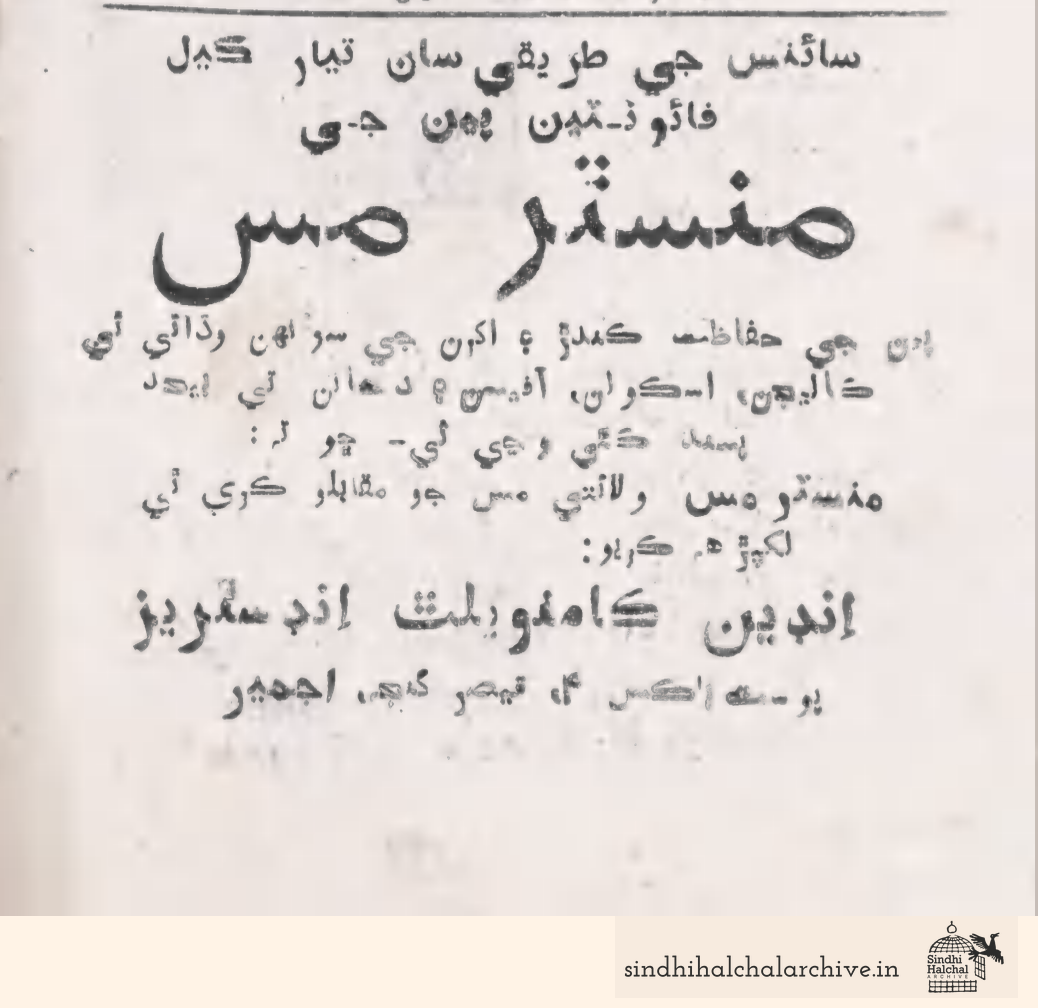 سائنس جي طريقي سان تيار ڪيل
فائونٽين پين جي
منسٽر مس
پين جي حفاظت ڪندڙ ۽ اکرن جي سونهن وڌائي ٿي
ڪاليجن، اسڪولن، آفيسن ۾ دڪانن تي بيحد
پسند ڪئي وڃي ٿي- ڇو تہ:
منسٽر مس ولائتي مس جو مقابلو ڪري ٿي
لکپڙهہ ڪريو:
انڊين ڪامنويلٿ انڊسٽريز
پوسٽ باڪس ۴، قيصر گنج، اجمير
sindhihalchalarchive.in
Sindhi
Halchal
ARCHIVE